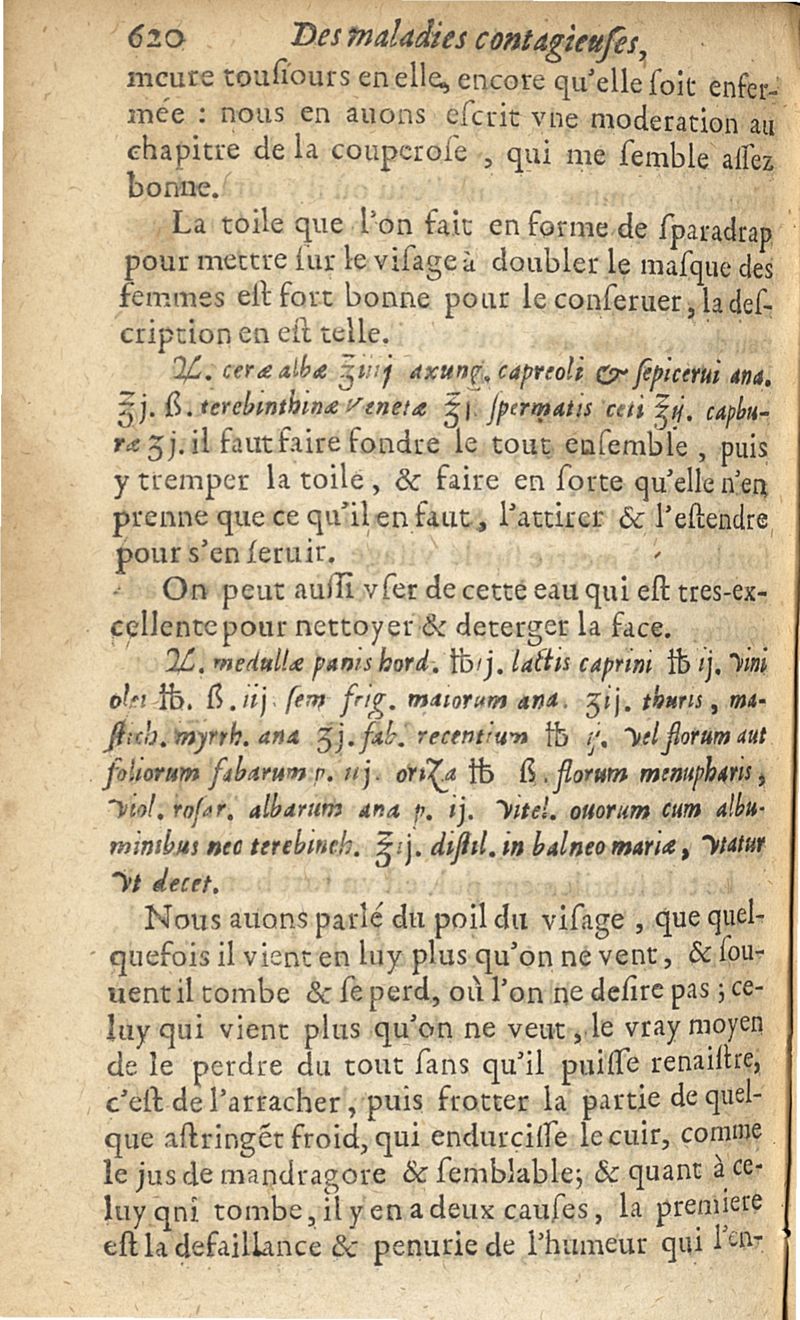 620 Des maladies contagieuſes,
meure touſiours en elle, encore qu'elle ſoit enfer-
mée : nous en auons eſcrit vne moderation au
chapitre de la couperoſe , qui me ſemble aſſez
bonne.
La toile que l'on fait en forme de ſparadrap
pour mettre ſur le viſage à doubler le maſque des
femmes eſt fort bonne pour le conſeruer, la deſ-
cription en eſt telle.
♃. ceræ albæ ℥iiij axung. capreoli & ſepicerui ana.
℥j. ß. terebinthinæ Venetæ ℥j. ſpermatis ceti ℥ij. caphu-
ræ ʒj. il faut faire fondre le tout enſemble , puis
y tremper la toile, & faire en ſorte qu'elle n'en
prenne que ce qu'il en faut, l'attirer & l'eſtendre
pour s'en ſeruir.
On peut auſſi vſer de cette eau qui eſt tres-ex-
cellente pour nettoyer & deterger la face.
♃. medullæ panis hord. ℔ij. lactis caprini ℔ ij. Vini
olei ℔. ß. iij. ſem frig. maiorum ana. ʒij. thuris, ma-
ſtich. myrrh. ana ʒj. fab. recentium ℔ ij. Vel florum aut
foliorum fabarum p. iij. oriza ℔ ß. florum menupharis,
Viol. roſar. albarum ana p. ij. Vitel. ouorum cum albu-
minibus nec terebinth. ℥ij. diſtil. in balneo mariæ, Vtatur
Vt decet.
Nous auons parlé du poil du viſage , que quel-
quefois il vient en luy plus qu'on ne vent, & ſou-
uent il tombe & ſe perd, où l'on ne deſire pas ; ce-
luy qui vient plus qu'on ne veut, le vray moyen
de le perdre du tout ſans qu'il puiſſe renaiſtre,
c'eſt de l'arracher, puis frotter la partie de quel-
que aſtringẽt froid, qui endurciſſe le cuir, comme
le jus de mandragore & ſemblable; & quant à ce-
luy qni tombe, il y en a deux cauſes, la premiere
eſt la defaillance & penurie de l'humeur qui l'en-